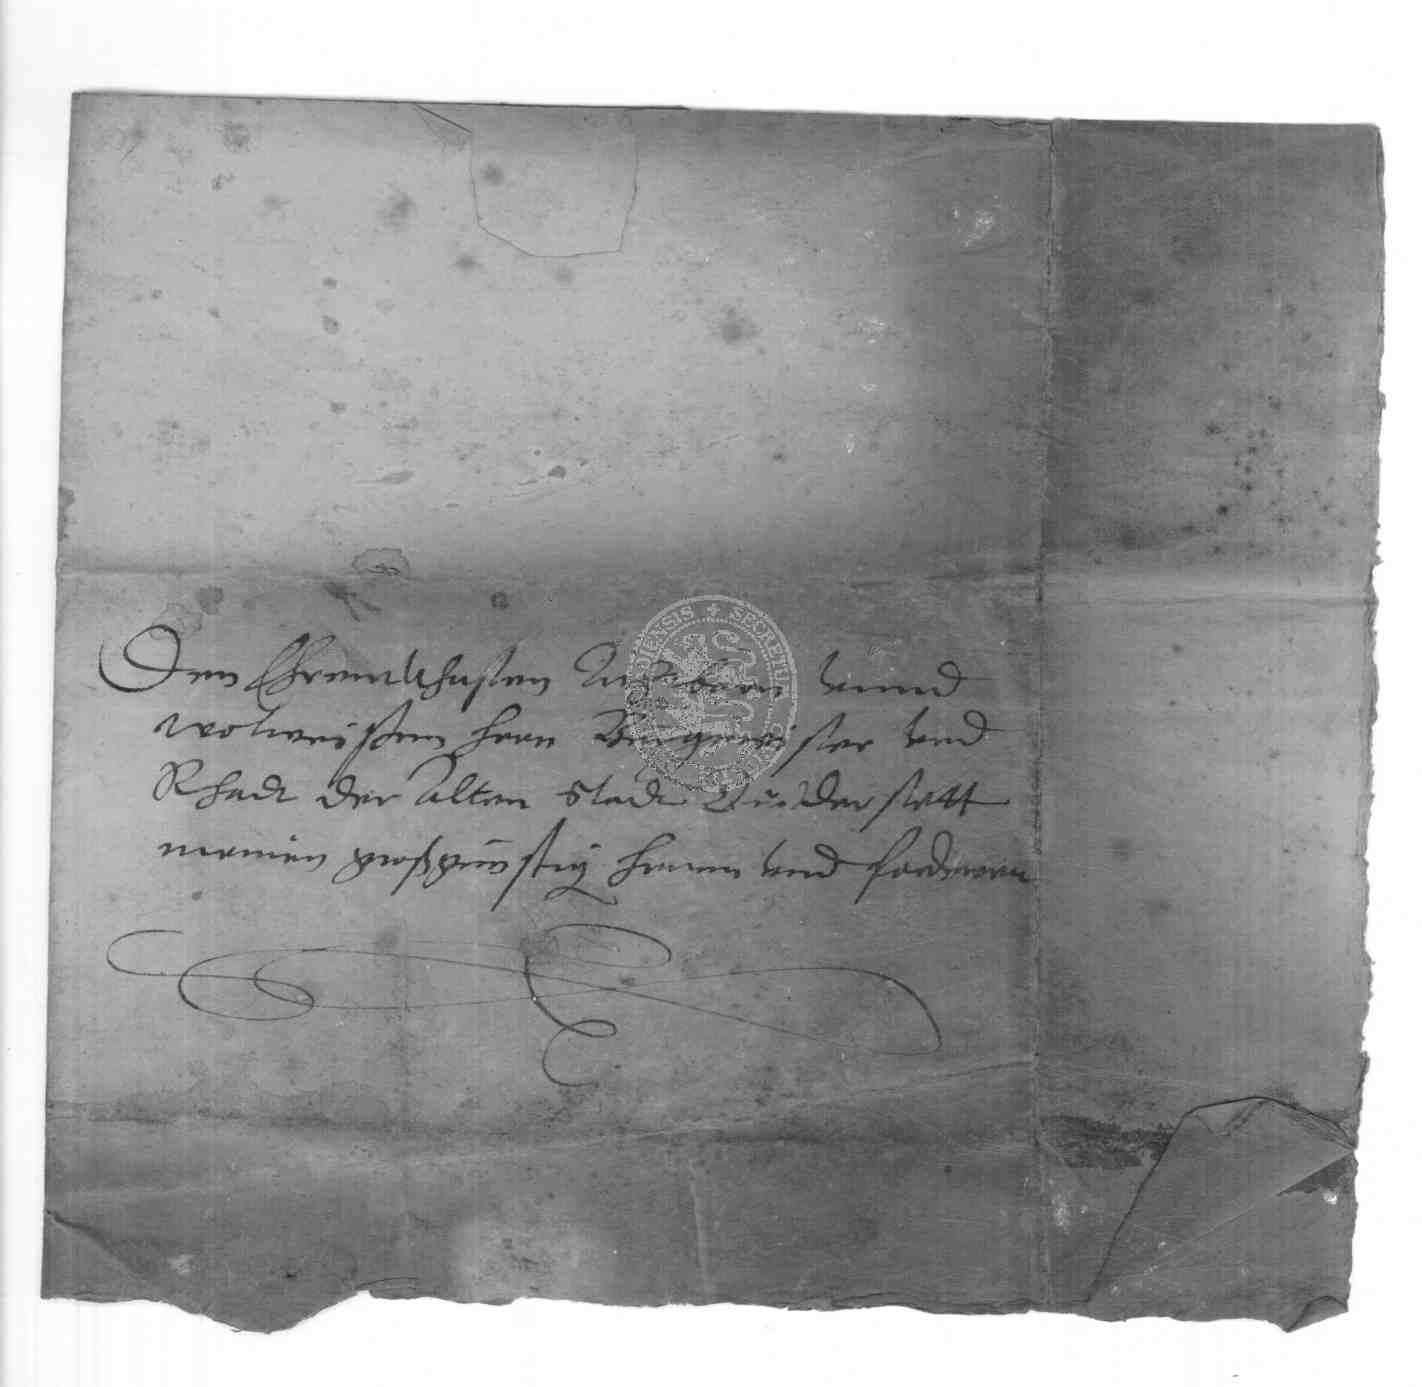 Den Ehrenvhesten Achtbarn vnnd
wolweisen herrn Burgmeister vnd
Rhadt der Alten Stadt Duderstett
meinen grosgünstig herren vnd fordereren